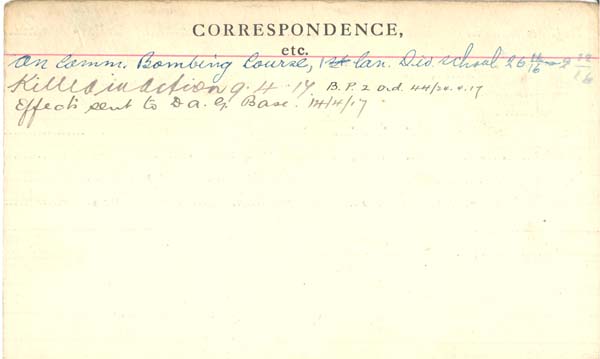 CORRESPONDENCE,
etc.
On Comm. Bombing Course, 1st Can. Div School 26
Killed in action 9.4.17. B.P. 2 Ord. 44/24.4.17
Effects sent to D.A.G. Base. 14/4/17